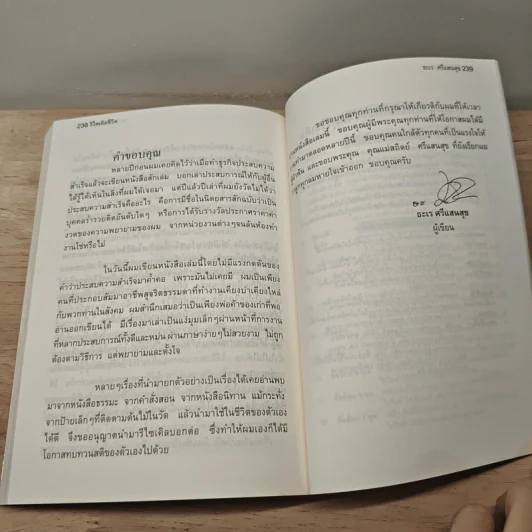 238 รีไซเคิลชีวิต
คำขอบคุณ
หลายปีก่อนผมเคยคิดไว้ว่าเมื่อทำธุรกิจประสบความ
สำเร็จแล้วจะเขียนหนังสือสักเล่ม บอกเล่าประสบการณ์ให้กับผู้อื่น
ได้รู้ได้เห็นในสิ่งที่ผมได้เจอมา แต่ปีแล้วปีเล่าที่ผมยังวัดไม่ได้ว่า
ประสบความสำเร็จคืออะไร คือการมีชื่อในนิตยสารสักฉบับว่าเป็น
บุคคลร่ำรวยติดอันดับใดๆ หรือการได้รับรางวัลประกาศราคาค่า
งวดของความพยายามของผม จากหน่วยงานต่างๆจนล้นห้องทำ
งานใช่หรือไม่
ในวันนี้ผมเขียนหนังสือเล่มนี้โดยไม่มีแรงกดดันของ
คำว่าประสบความสำเร็จมาค้ำคอ เพราะมันไม่เคยมี ผมเป็นเพียง
คนที่ประกอบสัมมาอาชีพสุจริตธรรมดาที่ทำงานเคียงบ่าเคียงไหล่
กับพวกท่านในสังคม ผมสำนึกเสมอว่าเป็นเพียงพ่อค้าของเก่าที่พอ
อ่านออกเขียนได้ มีเรื่องมาเล่าแง่มุมเล็กๆผ่านหน้าที่การงาน
ที่หลากประสบการณ์ทั้งดีและหม่น ผ่านภาษาง่ายๆไม่สวยงาม ไม่ถูก
ต้องตามวิธีการ แต่พยายามและตั้งใจ
หลายๆเรื่องที่นำมายกตัวอย่างเป็นเรื่องได้เคยอ่านพบ
มาจากหนังสือธรรมะ จากคำสั่งสอน จากหนังสือนิทาน แม้กระทั่ง
จากป้ายเล็กๆที่ติดตามต้นไม้ในวัด แล้วนำมาใช้ในชีวิตของตัวเอง
ได้ดี จึงขออนุญาตนำมารีไซเคิลบอกต่อ ซึ่งทำให้ผมเองก็ได้มี
โอกาสทบทวนสติของตัวเองไปด้วย
ธเรร ศรีแสนสุข 239
ขอขอบคุณทุกท่านที่กรุณาให้เกียรติกับผมที่ให้เวลา
านหนังสือเล่มนี้ ขอบคุณผู้มีพระคุณทุกท่านที่ให้โอกาสผมได้มี
ทำมาตลอดหลายปีนี้ ขอบคุณคนใกล้ตัวทุกคนที่เป็นแรงใจให้
และขอบพระคุณ คุณแม่สถิตย์ ศรีแสนสุข ที่ยังเรียกผม
ทุกลมหายใจเข้าออก ขอบคุณครับ
ธเรร ศรีแสนสุข
ผู้เขียน